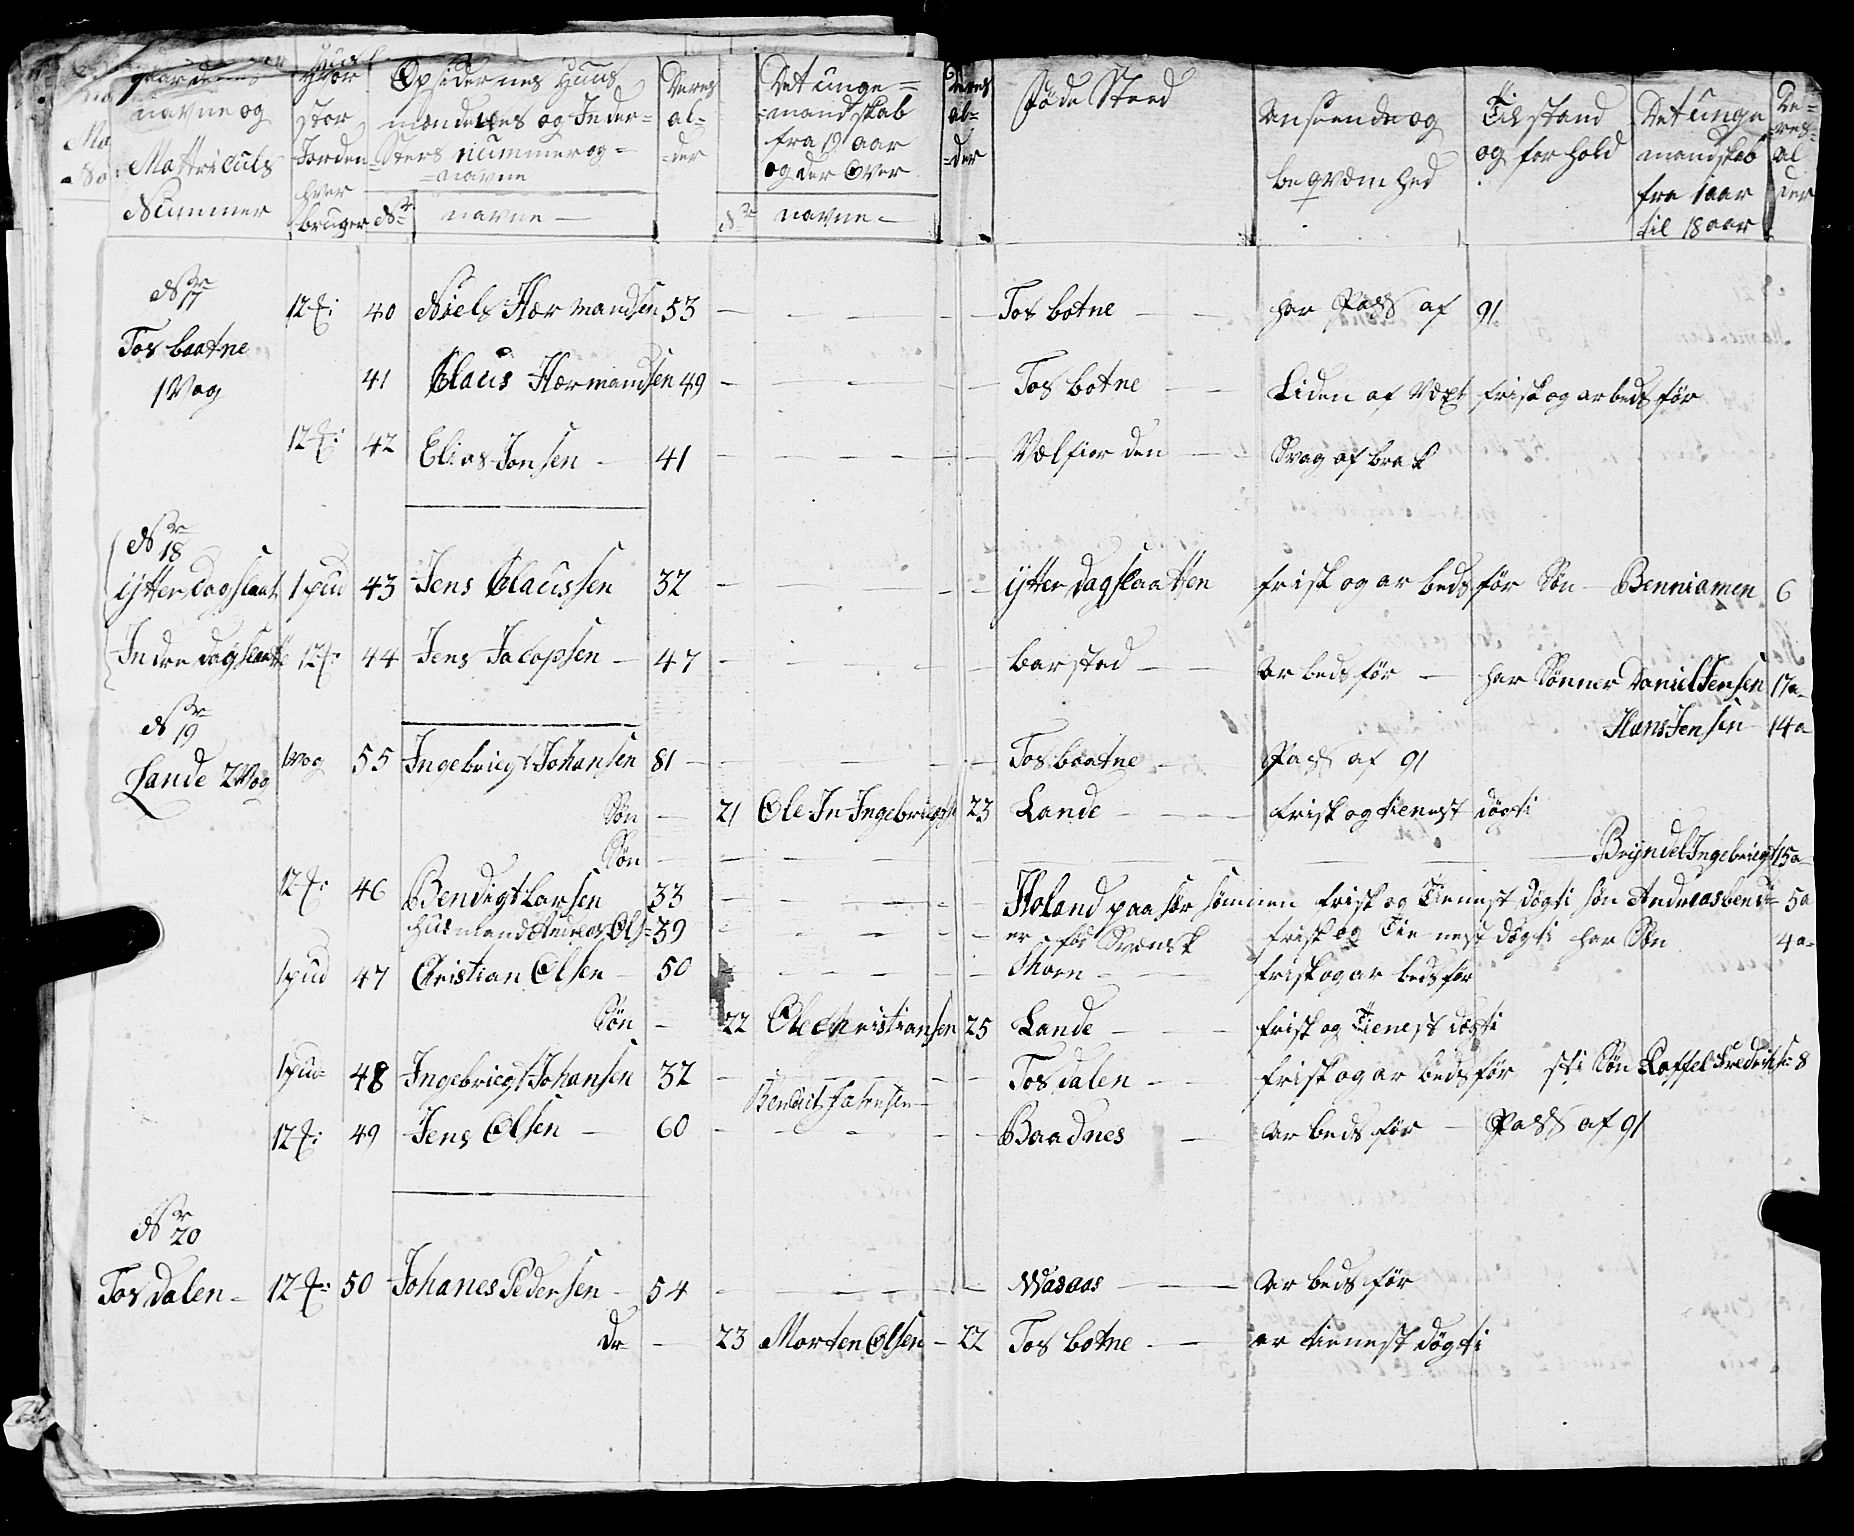 gaardenes navne og Mattriculs Nummer | Hvor stor Jorden hver bruger | Opsidernes Huus mændenes og Inder=sters nummer og navne | Deres al-der | Det unge=mandskab fra 19 aar og der over | Deres al-der | Føde Sted | Anseende og beqvæmhed | Tilstand og forhold | Det unge mandskab fra 1 aar til 18 aar | De=res al der
Nr | navne | Nr | navne
Nr 17 Tosbaatne 1 Vog
12 | 40 | Niels Hermandsen | 53 | Tosbotne | har Pass af 91
41 | Claus Hermandsen | 49 | Tosbotne | Liden af Vext frisk og arbedsfør
12 | 42 | Elias Jonsen | 41 | Velfiorden | Svag af brak
Nr 18
ÿtter dagslaat | 1 pud | 43 | Jens Claussen | 32 | ÿtter dagslaatten | frisk og arbedsfør | Søn Benniamen | 6
Indre dagslaatt | 12 | 44 | Jens Jacopsen | 47 | barstad | arbedsfør | har Sønner Daniel Jensen | 17a
Hans Jensen | 14a
Nr 19
Lande 2 Vog | 1 vog | 55 | Ingebrigt Johansen | 81 | Tosbaatne | Pass af 91
Søn | 21 | Ole In Ingebrigts | 23 | Lande | frisk og tienest døgti
Søn | Brÿndel Ingebrigt | 15a
12 | 46 | Bendigt Larsen | 33 | Holand paa Hr Sømnen | frisk og Tienest døgti | søn Andreas bendi= | 5a
husmand Andreas Ols= | 39 | er fød Svensk | frisk og Tienest døgti har Søn | 4a
1 pud | 47 | Christian Olsen | 50 | Skorn | frisk og arbedsfør
Søn | 22 | Ole Christiansen | 25 | Lande | frisk og Tienest døgti
1 pud | 48 | Ingebrigt Johansen | 32 | Tosdalen | frisk og arbedsfør | sti Søn Roffel Fredriks: | 8
12 | 49 | Jens Olsen | 60 | Baadnes | arbedsfør | Pass af 91
Nr 20
Tosdalen | 12 | 50 | Johanes Pedersen | 54 | Wasaas | arbedsfør
Dr | 23 | Morten Olsen | 22 | Tosbotne | er tienest døgti